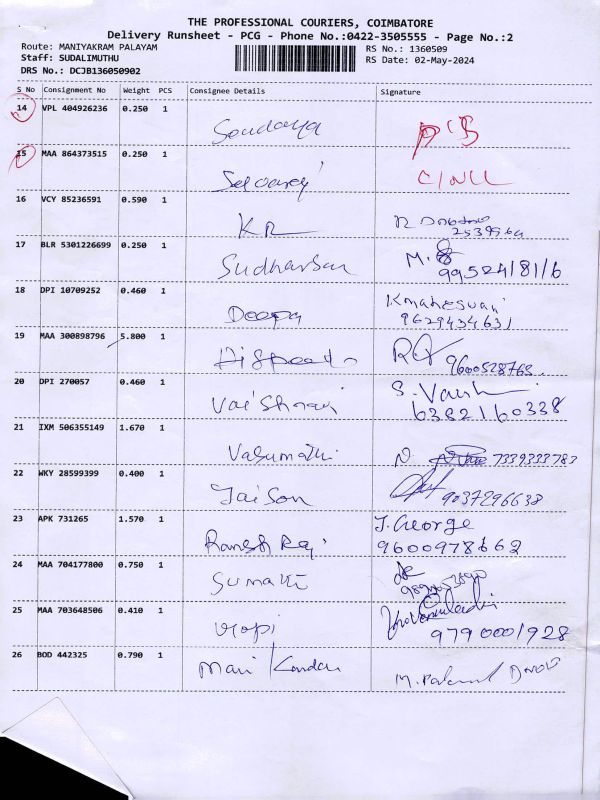 THE PROFESSIONAL COURIERS, COIMBATORE
Delivery Runsheet - PCG - Phone No.:0422-3505555 - Page No.:2
Route: MANIYAKRAM PALAYAM RS No.: 1360509
Staff: SUDALIMUTHU RS Date: 02-May-2024
DRS No.: DCJB136050902
S No Consignment No Weight PCS Consignee Details Signature
14 VPL 404926236 0.250 1
15 MAA 864373515 0.250 1
16 VCY 85236591 0.590 1 KR
17 BLR 5301226699 0.250 1 Sudharsan M.
9952418116
18 DPI 10709252 0.460 1 Deepa Kmaheswari
9629434631
19 MAA 300898796 5.800 1 9600528763
20 DPI 270057 0.460 1 Vaishnavi S. Vaish
6382160338
21 IXM 506355149 1.670 1 Vasumathi N 7339333783
22 WKY 28599399 0.400 1 Jaison 9037296638
23 APK 731265 1.570 1 Ramesh Raj J. George
9600978662
24 MAA 704177800 0.750 1 Sumathi
25 MAA 703648506 0.410 1 Gopi
9790001928
26 BOD 442325 0.790 1 Mani Kandan M.